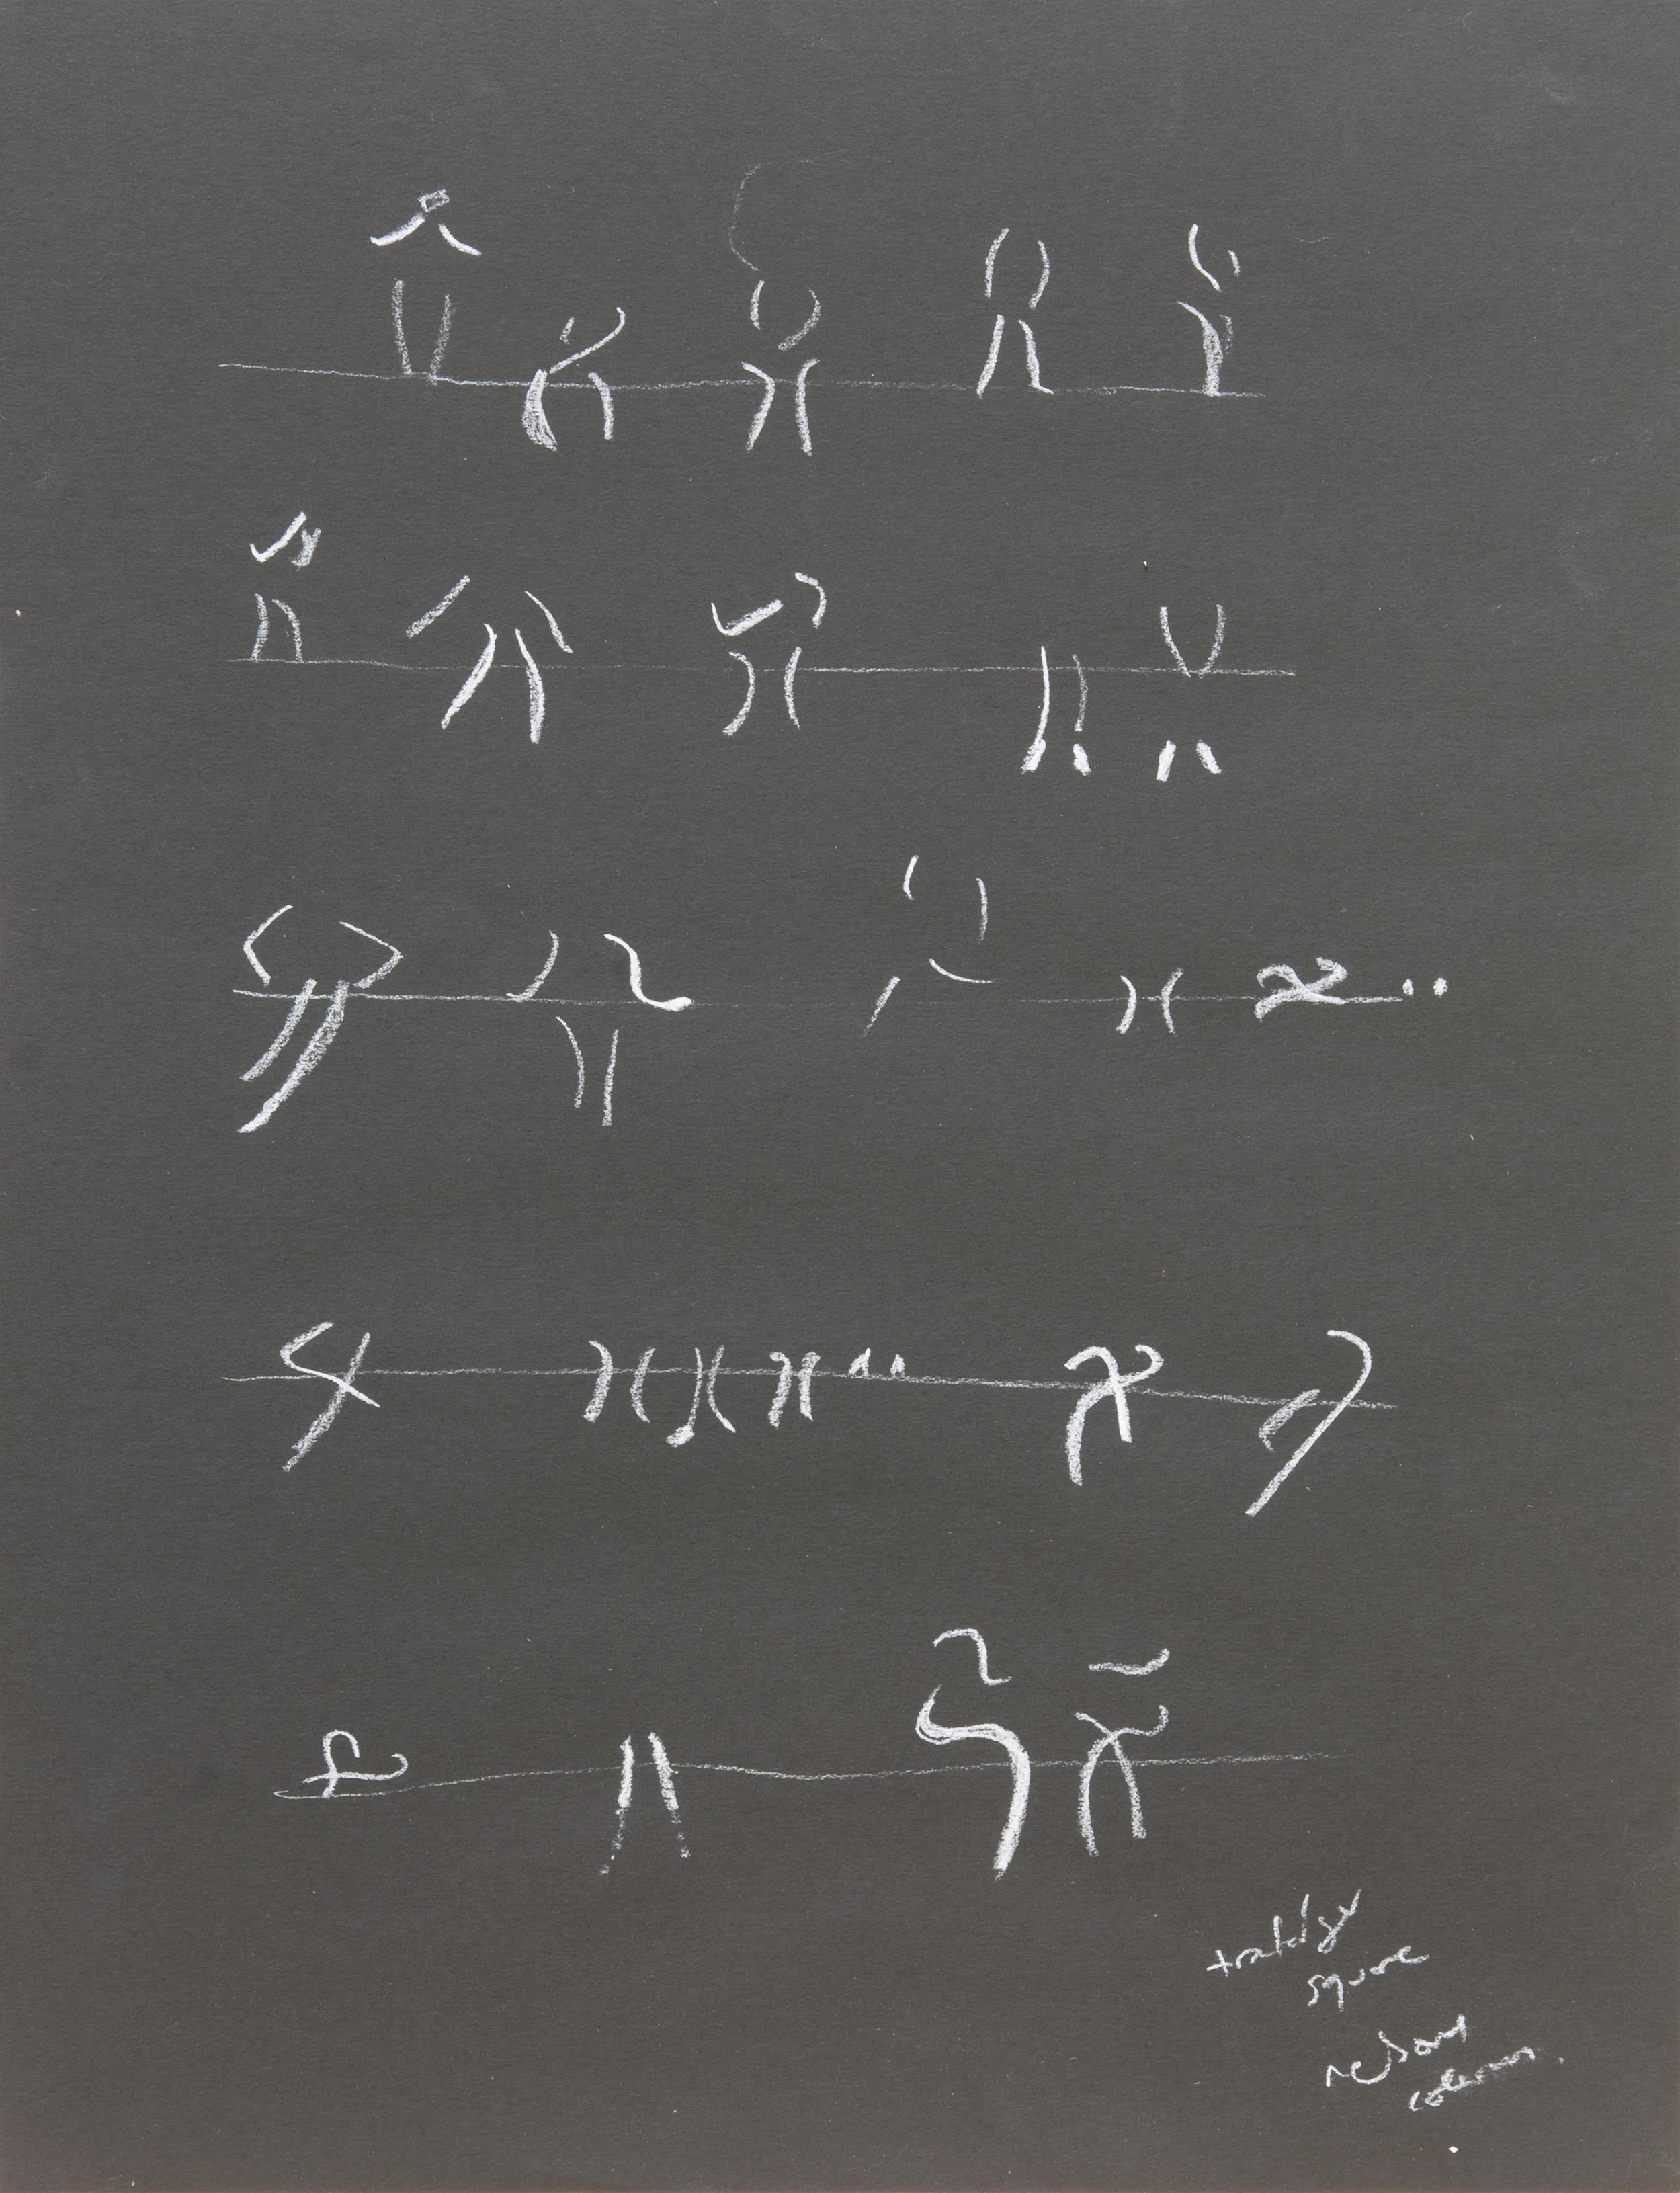 trafalgar
square
nelsons
column.